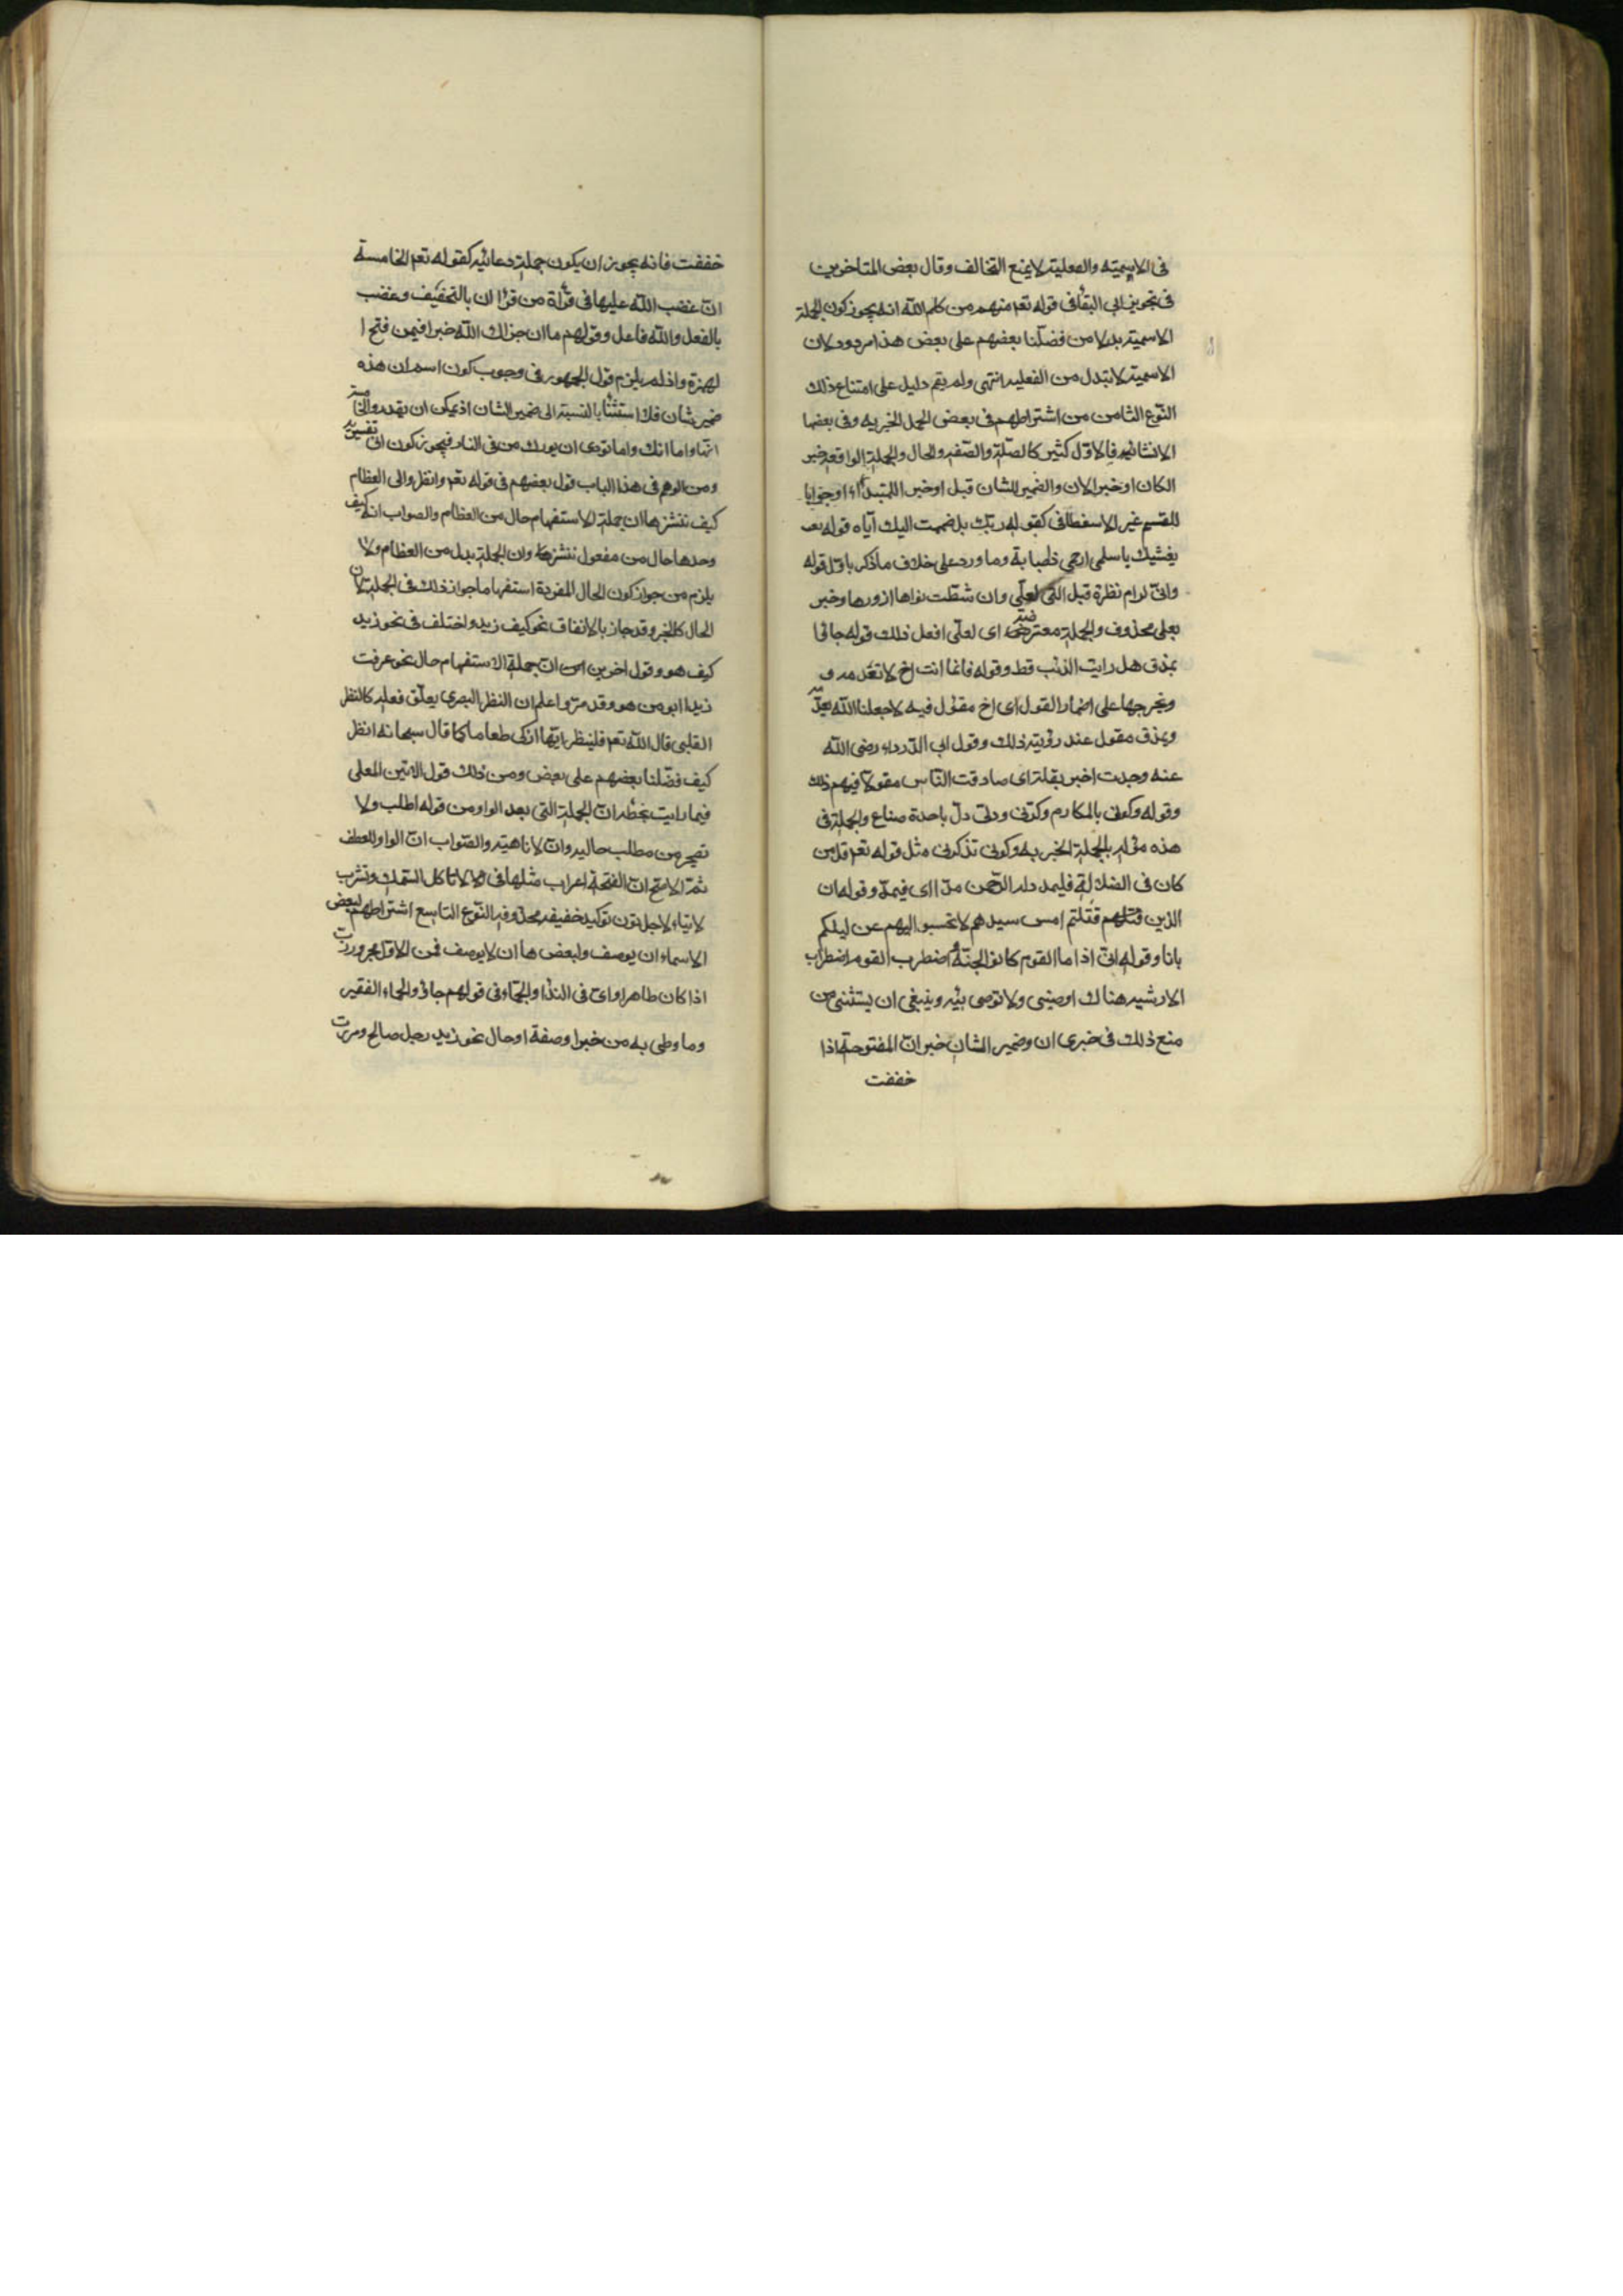 فى الاسميته والفعلية لايمنع التخالف وقال بعض المتاخرين
فى تجويز ابى البقأ فى قوله تعم منهم من كلم الله انه يجوز كون الجملة
الاسمية بدلا من فضلنا بعضهم على بعض هذا مردود لان
الاسمية لاتبدل من الفعليه انتهى ولم يقم دليل على امتناع ذلك
النوع الثامن من اشتراطهم فى بعض الجمل الخبريه وفى بعضها
الانشائيه فالاول كثير كالصلة والصفه والحال والجملة الواقعه خبر
الكان او خبر الان والضمير الشان قبل او خبر اللمتبدأ او جوابا
للقسم غير الاسغطافى كقوله ربك بل ضممت اليك آياه قوله بعد
يغشيك ياسلمى ارحمى ذاصبابة وما ورد على خلاف ماذكر باول قوله
وانى لرام نظرة قبل التى لعلى وان شقت نواها ازورها وخبر
بعلى محذوف والجملة معترضه اى لعلى افعل ذلك قوله جائا
بمذق هل رايت الذئب قط وقوله فانما انت اخ لا تعدمه و
ونخرجها على اضمار القول اى اخ مقول فيه لاجعلنا الله
وبمذق مقول عند رؤيته ذلك وقول ابى الدرداء رضى الله
عنه وجدت اخبر بقلة اى صادقت الناس مقولا فيهم ذلك
وقوله وكونى بالمكارم وكرنى ودلى دل باحدة صناع والجملة فى
هذه مؤله بالجملة الخبريه وكونى تذكرنى مثل قوله تعم قل من
كان فى الضلالة فليمدد له الرحمن مدا اى فيمد وقوله ان
الذين قتلتم امس سيدهم لا تحسبوا اليهم عن ليلكم
بانا وقوله انى اذا ما القوم كانوا انجية أضطرب القوم اضطراب
الارشيه هناك اوصينى ولا توصى بيه وينبغى ان يستثنى من
منع ذلك فى خبرى ان وضمير الشان خبر ان المفتوحة اذا
خففت
خففت فانه يجوز ان يكون جملة دعائيه كقوله تعم الخامسة
ان غضب الله عليها فى قرأة من قرأ ان بالتخفيف وغضب
بالفعل والله فاعل وقولهم ما ان جزاك الله خبرا فيمن فتح ا
لهمزة واذلم يلزم قول الجمهور فى وجوب كون اسم ان هذه
ضمير شان فلا استثنأ بالنسبة الى ضمير الشان اذيمكن ان يقدر والخامسة
انها واما انك واما نودى ان بورك من فى النار فيجوز كون ان تفسيريه
ومن الوهم فى هذا الباب قول بعضهم فى قوله تعم وانظر والى العظام
كيف ننشزها ان جملة الاستفهام حال من العظام والصواب انه كيف
وحدها حال من مفعول ننشزها وان الجملة بدل من العظام ولا
يلزم من جواز كون الحال المفردة استفهاما جواز ذلك فى الجملة لان
الحال كالخبر وقد جاز بالاتفاق نحو كيف زيد واختلف فى نحو زيد
كيف هو وقول اخرين ان جملة الاستفهام حال نحو عرفت
زيدا ابو من هو وقد مر واعلم ان النظر البصرى يعلق فعله كالنظر
القلبى قال الله تعم فلينظر ايها ازكى طعاما كما قال سبحانه انظر
كيف فضلنا بعضهم على بعض ومن ذلك قول الامين المعلى
فيما رايت بخطه ان الجملة التى بعد الواو من قوله اطلب ولا
تضجر من مطلب حاليه وان لا ناهيته والصواب ان الواو للعطف
ثم الاصح ان الفتحة اعراب مثلها فى لا تاكل السمك وتشرب
لابناء لاجل نون توكيد خفيفه محذوفه النوع التاسع اشتراطهم لبعض
الاسماء ان يوصف ولبعضها ان لا يوصف فمن الاول مجرور رب
اذا كان ظاهرا واى فى الندا والجماء فى قولهم جاؤ الجماء الفقير
وما وطى به من خبر او صفة او حال نحو زيد رجل صالح ومررت